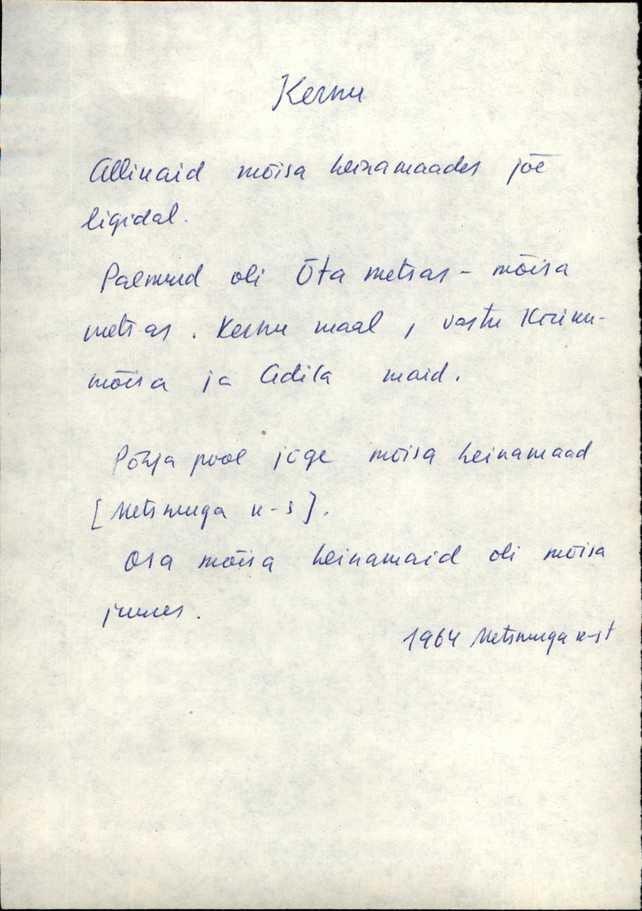 Kernu
Allikaid mõisa heinamaades jõe
ligidal.
Paemurd oli Õta metsas - mõisa
metsas. Kernu maal, vastu Kõrinu-
mõisa ja Adila maid.
Põhja pool jõge mõisa heinamaad
[Metsmuga k-s].
Osa mõisa heinamaid oli mõisa
juures.
1964 Metsmuga k-st